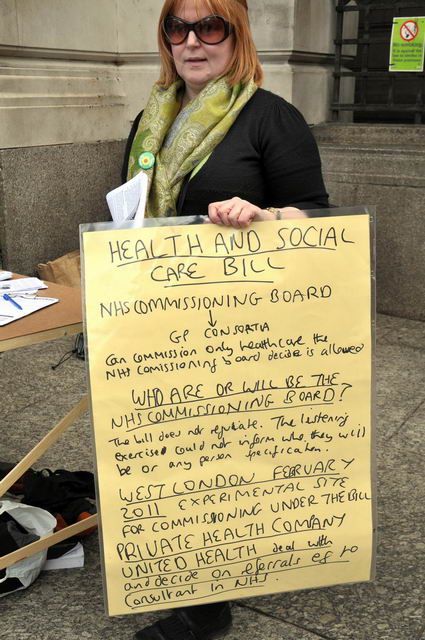 HEALTH AND SOCIAL
CARE BILL
NHS COMMISSIONING BOARD
↓
GP CONSORTIA
Can commission only healthcare the
NHS Comissioning board decides is allowed
WHO ARE OR WILL BE THE
NHS COMMISSIONING BOARD?
The bill does not regulate. The listening
exercised could not inform who they will
be or any person specification.
WEST LONDON FEBRUARY
2011 EXPERIMENTAL SITE
FOR COMMISSIONING UNDER THE BILL
PRIVATE HEALTH COMPANY
UNITED HEALTH deal with
and decide on referrals eg to
Consultant in NHS.
No smoking